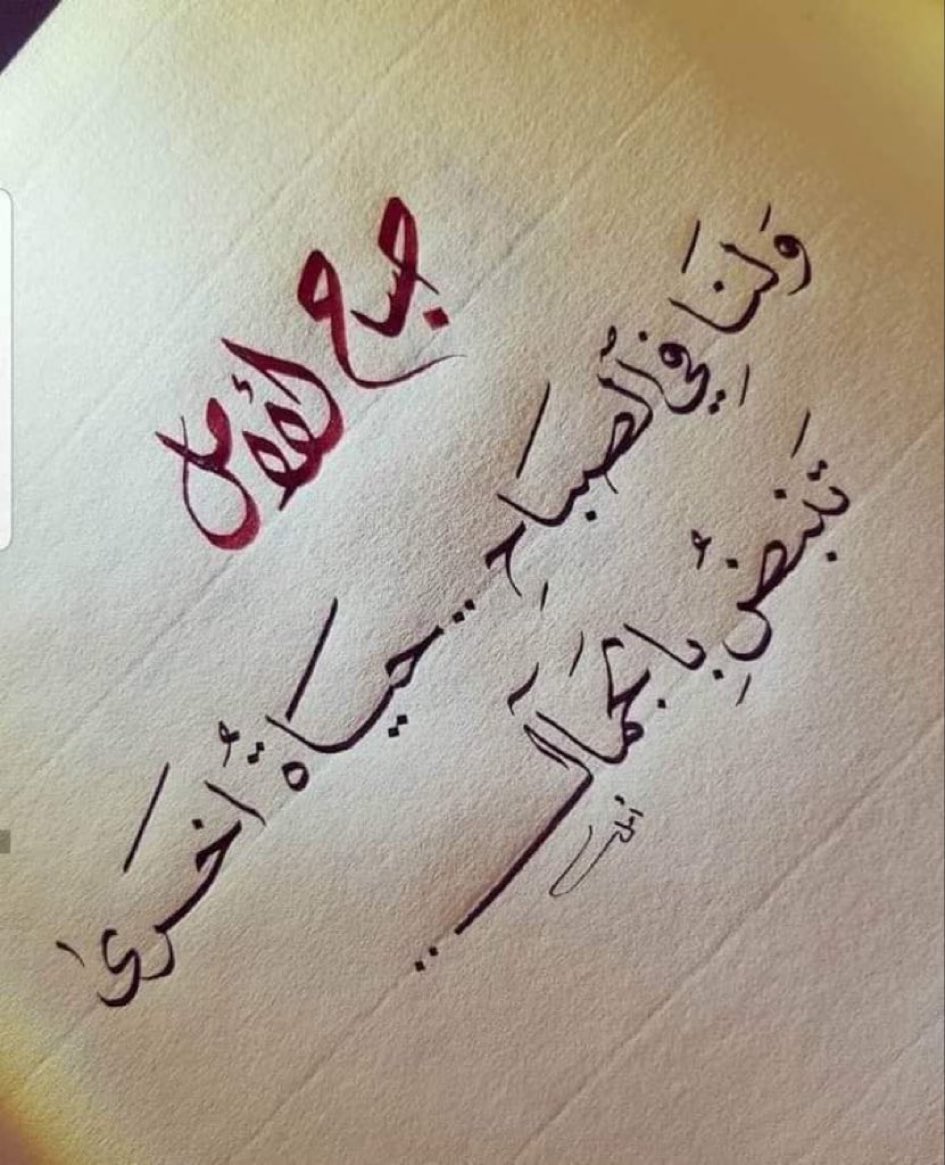 صباح الأمل
وَلنَا فِي ٱلصُبَاح .. حيَاةٌ أُخرىٰ
تَنبضُ بِالجَمال ..